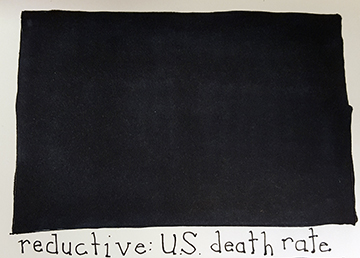 reductive: U.S. death rate